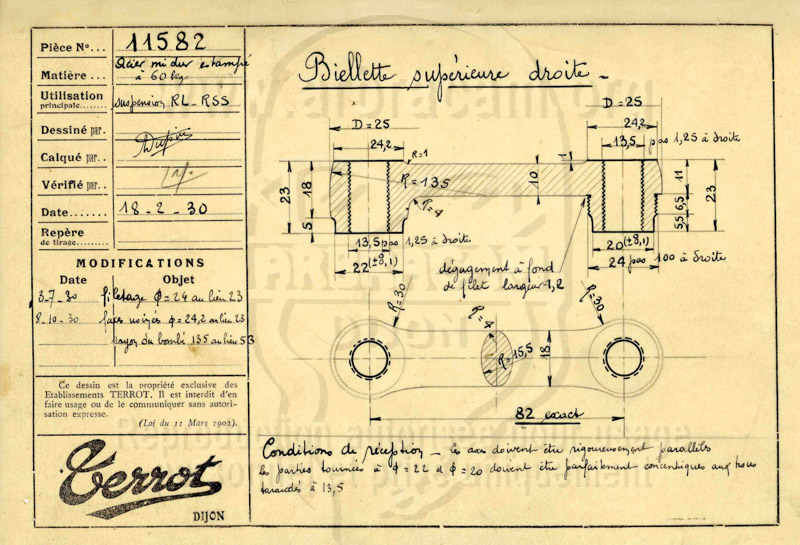 Pièce N°... 11582
Matière ... Acier mi dur estampé
à 60 kgs
Utilisation
principale........ suspension RL - RSS
Dessiné par.
Calqué par..
Vérifié par..
Date....... 18 - 2 - 30
Repère
de tirage........
MODIFICATIONS
Date Objet
3-7-30 filetage ϕ = 24 au lieu 23
8-10-30 faces ϕ = 24,2 au lieu 23
rayon du bombé 135 au lieu 53
Ce dessin est la propriété exclusive des
Etablissements TERROT. Il est interdit d'en
faire usage ou de le communiquer sans autori-
sation expresse.
(Loi du 11 Mars 1902).
Terrot
DIJON
Biellette supérieure droite -
D = 25
24,2
R=1
R = 135
R=4
23
18
5
13,5 pas 1,25 à droite
22 (±0,1)
10
1
D = 25
24,2
13,5 pas 1,25 à droite
11
6,5
5,5
23
20 (±0,1)
24 pas 100 à droite
dégagement à fond
de filet largeur 1,2
R=30
R=4
R=15,5
18
R=30
82 exact
Conditions de réception - les axes doivent être rigoureusement parallèles
les parties tournées à ϕ = 22 et ϕ = 20 doivent être parfaitement concentriques aux trous
taraudés à 13,5